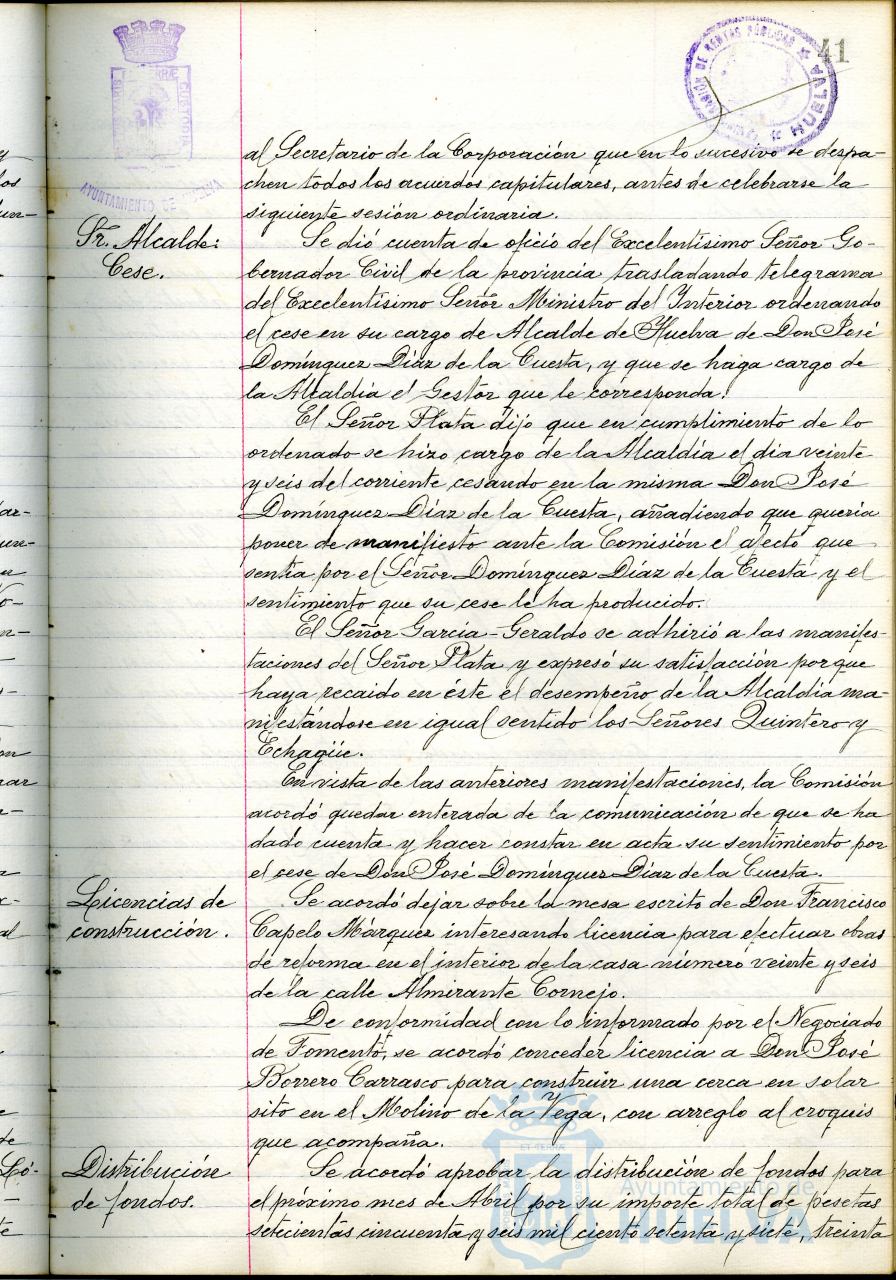 41
PORTUS MARIS ET TERRÆ CUSTODIA
AYUNTAMIENTO DE HUELVA
DE RENTAS PÚBLICAS * HUELVA *
al Secretario de la Corporación que en lo sucesivo se despa-
chen todos los acuerdos capitulares, antes de celebrarse la
siguiente sesión ordinaria.
Sr. Alcalde:
Cese.
Se dió cuenta de oficio del Excelentísimo Señor Go-
bernador Civil de la provincia trasladando telegrama
del Excelentísimo Señor Ministro del Interior ordenando
el cese en su cargo de Alcalde de Huelva de Don José
Domínguez Díaz de la Cuesta, y que se haga cargo de
la Alcaldía el Gestor que le corresponda.
El Señor Plata dijo que en cumplimiento de lo
ordenado se hizo cargo de la Alcaldía el dia veinte
y seis del corriente cesando en la misma Don José
Domínguez Díaz de la Cuesta, añadiendo que quería
poner de manifiesto ante la Comisión el afecto que
sentía por el Señor Domínguez Díaz de la Cuesta y el
sentimiento que su cese le ha producido.
El Señor García-Geraldo se adhirió a las manifes-
taciones del Señor Plata y expresó su satisfacción por que
haya recaido en éste el desempeño de la Alcaldía ma-
niestándose en igual sentido los Señores Quintero y
Echagüe.
En vista de las anteriores manifestaciones, la Comisión
acordó quedar enterada de la comunicación de que se ha
dado cuenta y hacer constar en acta su sentimiento por
el cese de Don José Domínguez Díaz de la Cuesta.
Licencias de
construcción.
Se acordó dejar sobre la mesa escrito de Don Francisco
Capelo Márquez interesando licencia para efectuar obras
de reforma en el interior de la casa número veinte y seis
de la calle Almirante Cornejo.
De conformidad con lo informado por el Negociado
de Fomento, se acordó conceder licencia a Don José
Borrero Carrasco para construir una cerca en solar
sito en el Molino de la Vega, con arreglo al croquis
que acompaña.
Distribución
de fondos.
Se acordó aprobar la distribución de fondos para
el próximo mes de Abril por su importe total de pesetas
setecientas cincuenta y seis mil ciento setenta y siete, treinta
Ayuntamiento de
HUELVA